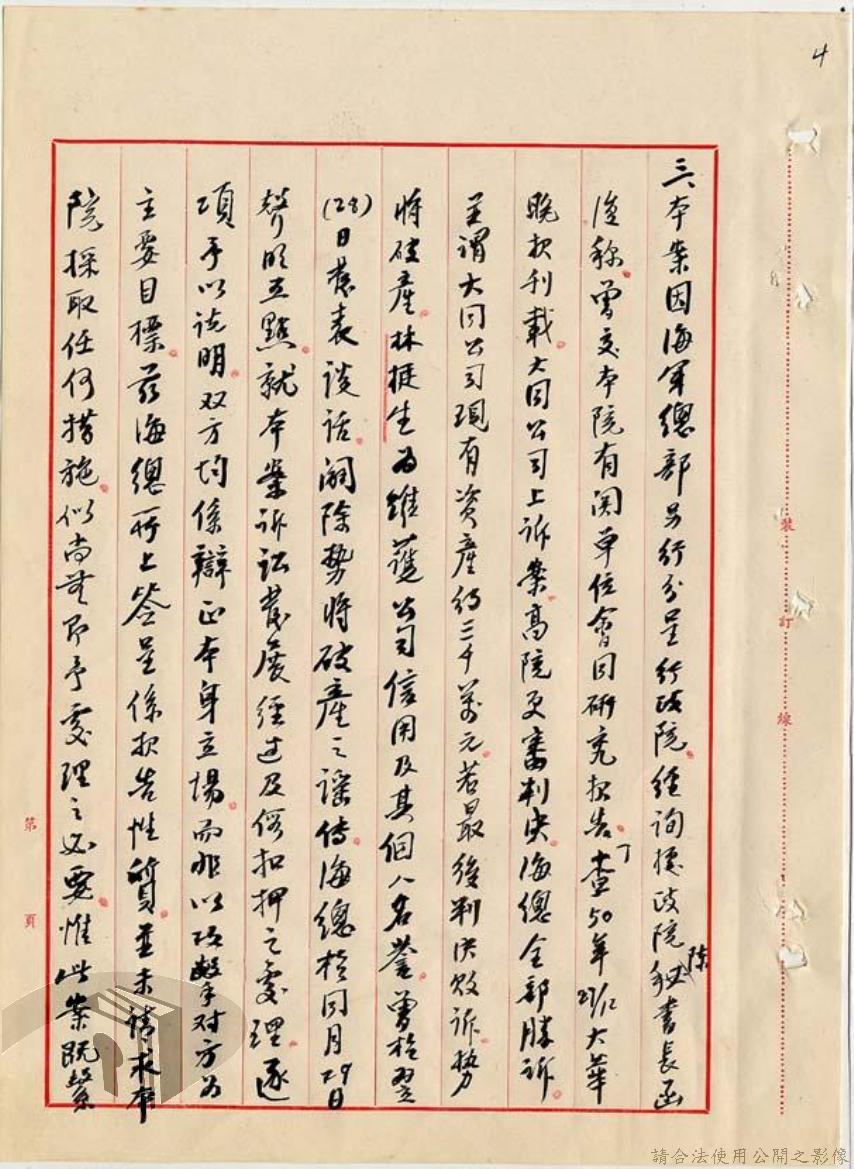 4
三、本案因海軍總部另行分呈行政院。經詢據政院陳秘書長函
復稱。曾交本院有關單位會同研究報告。查50年27/12大華
晚報刊載。大同公司上訴案。高院更審判決。海總全部勝訴。
並謂大同公司現有資產約三千萬元。若最後判決敗訴。勢
將破產。林挺生為維護公司信用及其個人名譽。曾於翌
(28)日發表談話。闢除勢將破產之謠傳。海總於同月29日
聲明五點。就本案訴訟發展經過及假扣押之處理。逐
項予以說明。双方均係辯正本身立場。而非以攻擊對方為
主要目標。茲海總所上簽呈係報告性質。並未請求本
院採取任何措施。似尚無即予處理之必要。惟此案既繫
裝
訂
線
第 頁
請合法使用公開之影像